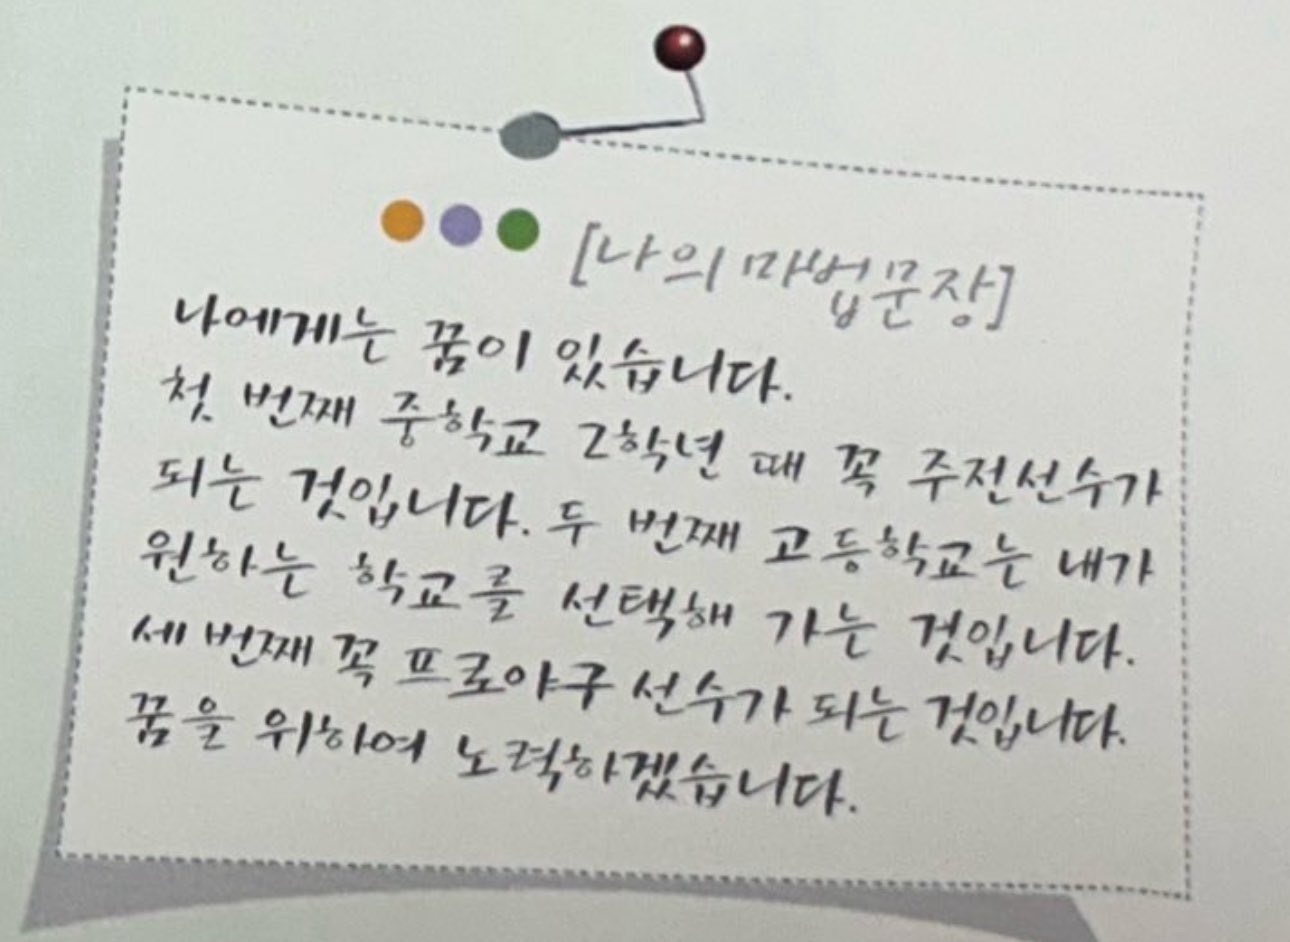 [나의 마법문장]
나에게는 꿈이 있습니다.
첫 번째 중학교 2학년 때 꼭 주전선수가
되는 것입니다. 두 번째 고등학교는 내가
원하는 학교를 선택해 가는 것입니다.
세 번째 꼭 프로야구 선수가 되는 것입니다.
꿈을 위하여 노력하겠습니다.